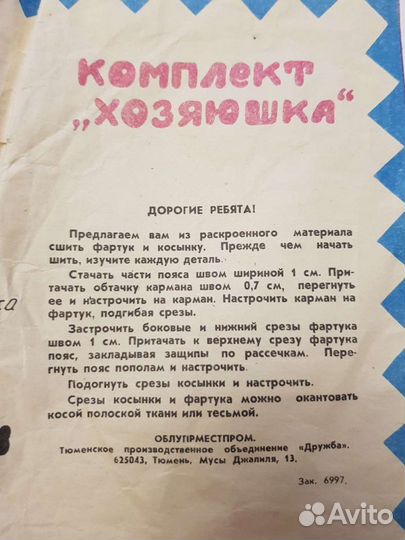 КОМПЛЕКТ
„ХОЗЯЮШКА“
ДОРОГИЕ РЕБЯТА!
Предлагаем вам из раскроенного материала
сшить фартук и косынку. Прежде чем начать
шить, изучите каждую деталь.
Стачать части пояса швом шириной 1 см. При-
тачать обтачку кармана швом 0,7 см, перегнуть
ее и настрочить на карман. Настрочить карман на
фартук, подгибая срезы.
Застрочить боковые и нижний срезы фартука
швом 1 см. Притачать к верхнему срезу фартука
пояс, закладывая защипы по рассечкам. Пере-
гнуть пояс пополам и настрочить.
Подогнуть срезы косынки и настрочить.
Срезы косынки и фартука можно окантовать
косой полоской ткани или тесьмой.
ОБЛУПРМЕСТПРОМ.
Тюменское производственное объединение «Дружба».
625043, Тюмень, Мусы Джалиля, 13.
Зак. 6997.
Avito